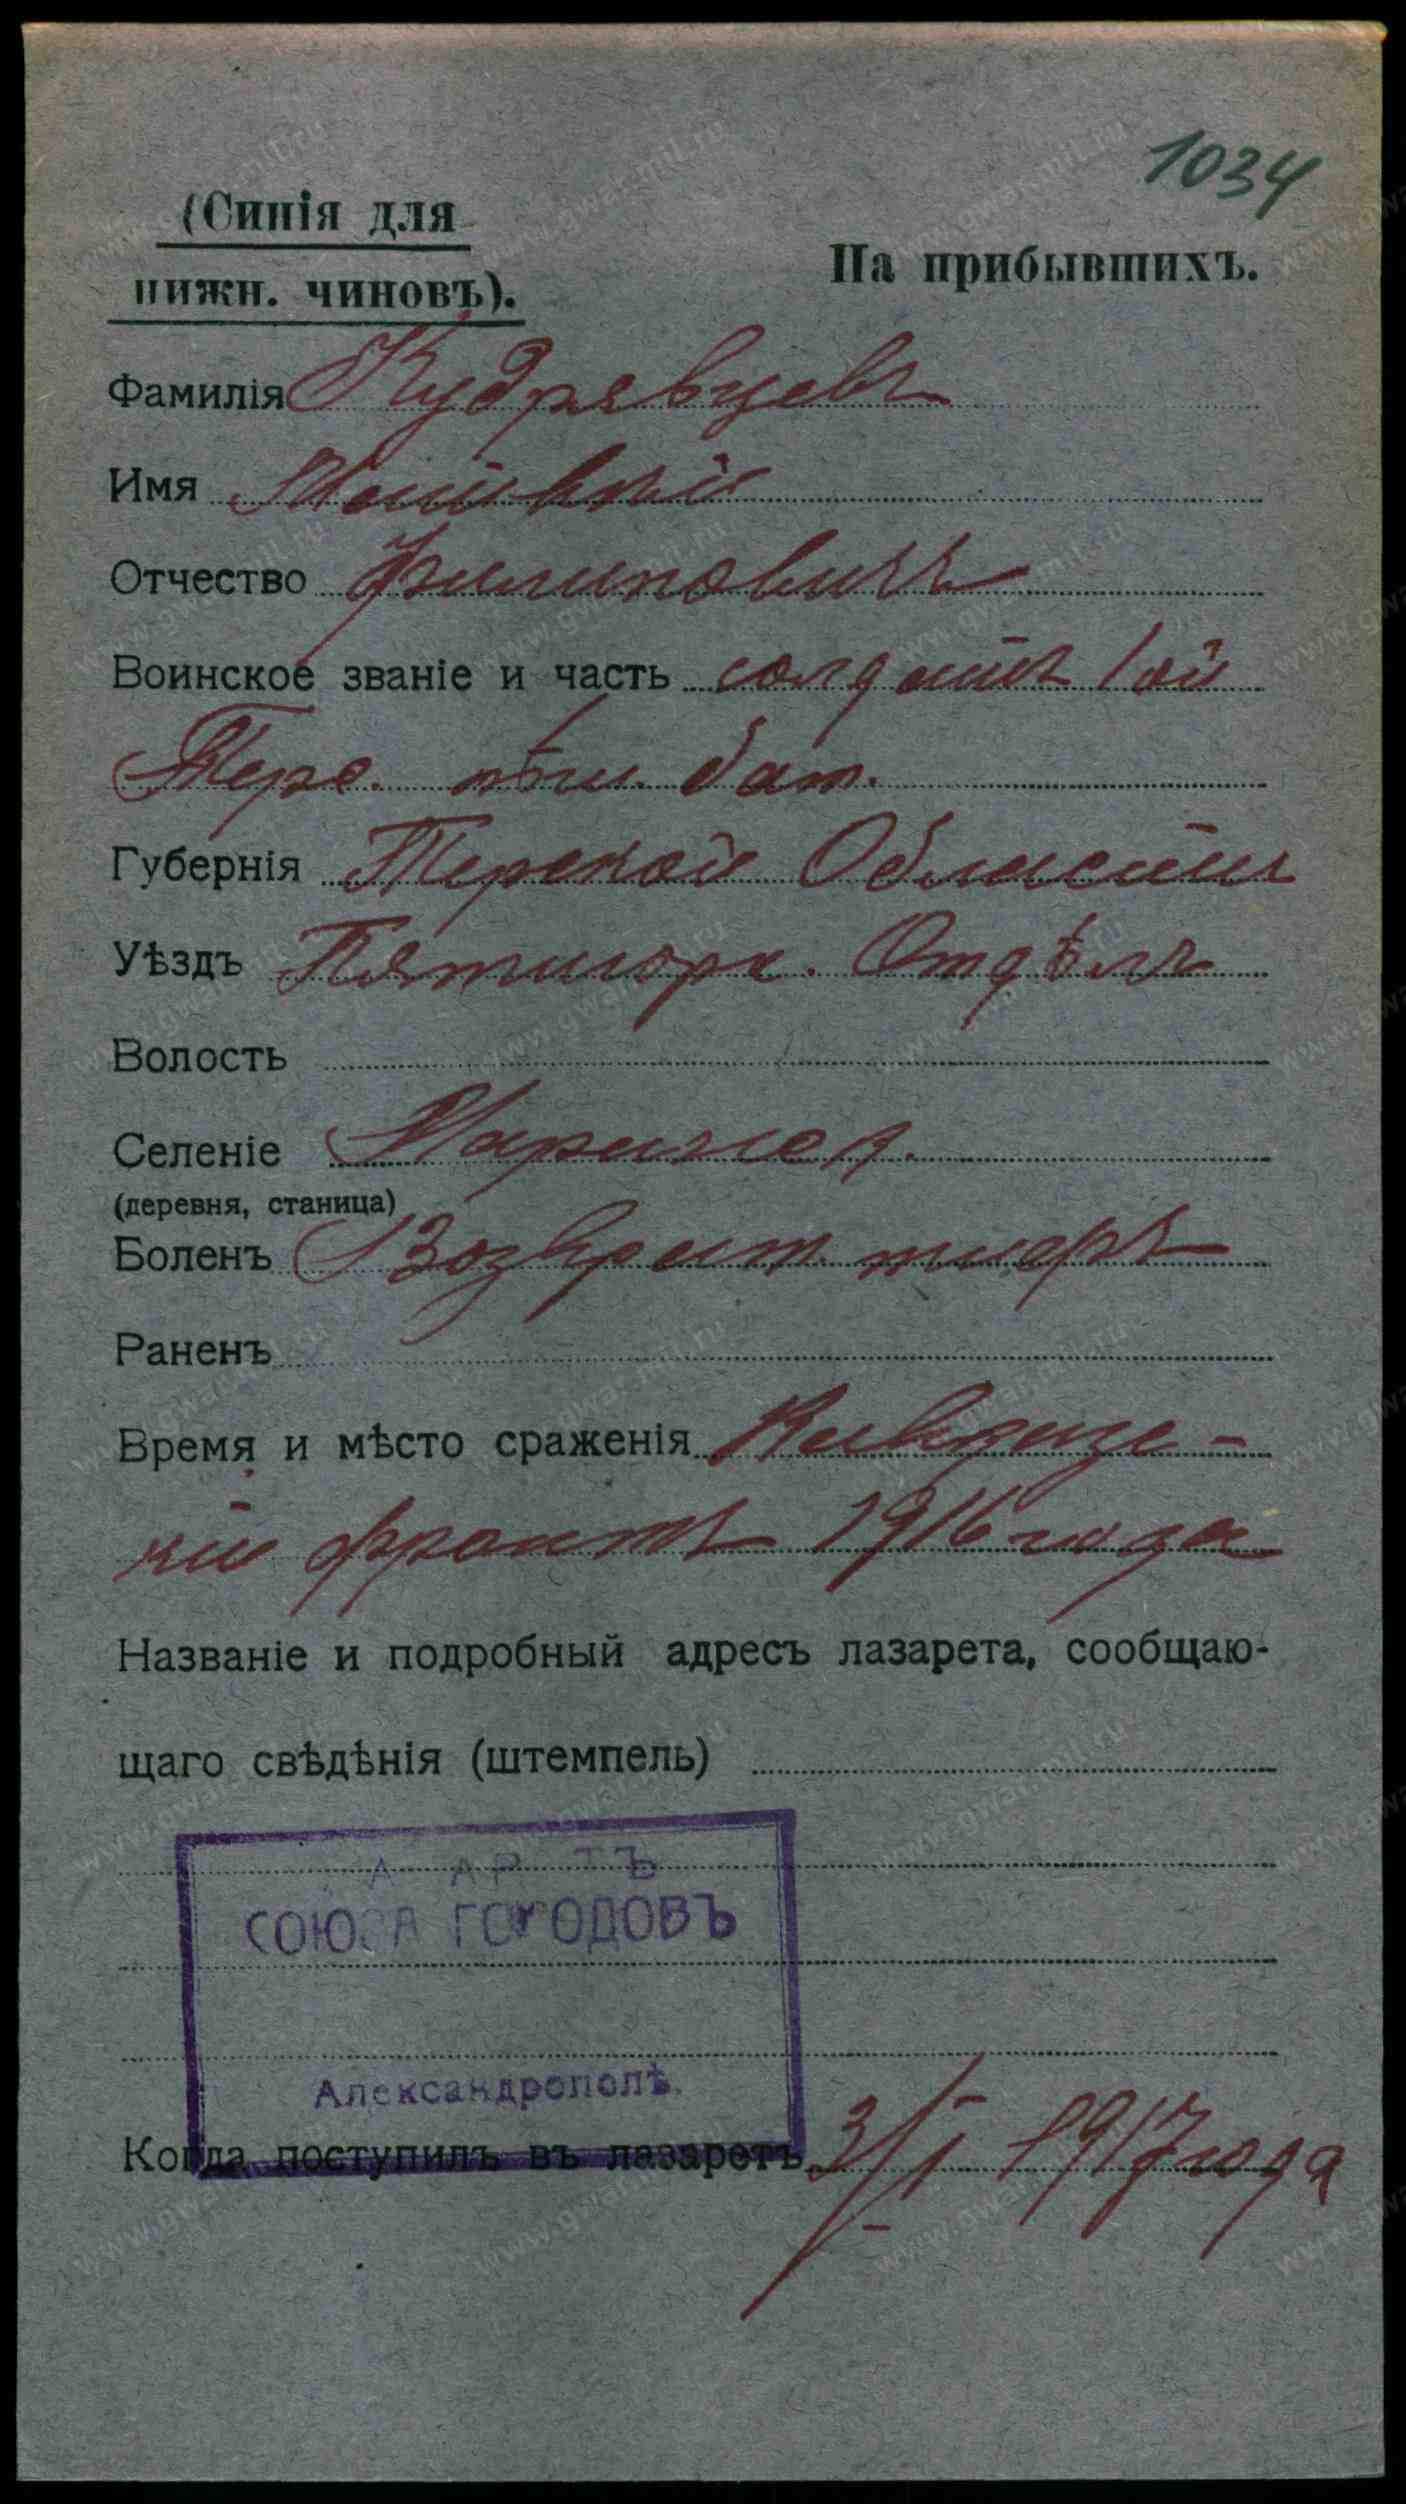 1034
(Синія для
нижн. чиновъ).
На прибывшихъ.
Фамилія Кудрявцевъ
Имя
Отчество Филиповичъ
Воинское званіе и часть солдатъ 1ой
Терс. пѣш. бат.
Губернія Терской Области
Уѣздъ Пятигорк. Отдѣлъ
Волость
Селеніе
(деревня, станица)
Боленъ Возврат. тифъ
Раненъ
Время и мѣсто сраженія Кавказс-
кій фронтъ 1916 года
Названіе и подробный адресъ лазарета, сообщаю-
щаго свѣдѣнія (штемпель)
СОЮЗА ГОРОДОВЪ
Александрополѣ.
Когда поступилъ въ лазаретъ 3/I 1917 года
www.gwar.mil.ru